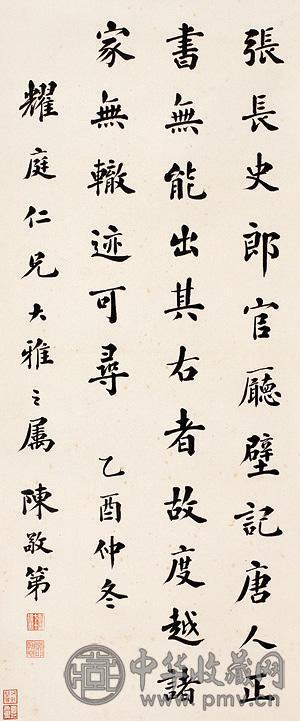 張長史郎官廳壁記唐人正
書無能出其右者故度越諸
家無轍迹可尋 乙酉仲冬
耀庭仁兄大雅之属 陳敬第
中华收藏网
www.pmv.cn